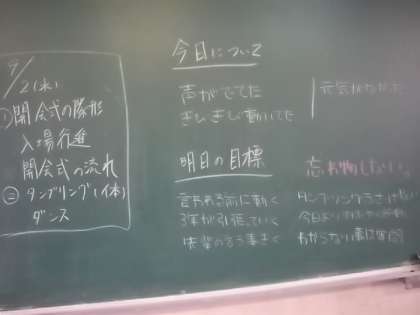 9/2(水)
①開会式の隊形
入場行進
開会式の流れ
②タンブリング(体)
ダンス
今日について
声がでてた
きびきび動いてた
元気がなかった
明日の目標
忘れ物しない
言われる前に動く
3年が引張っていく
先輩の言う事きく
タンブリング
今日より
わからない事は